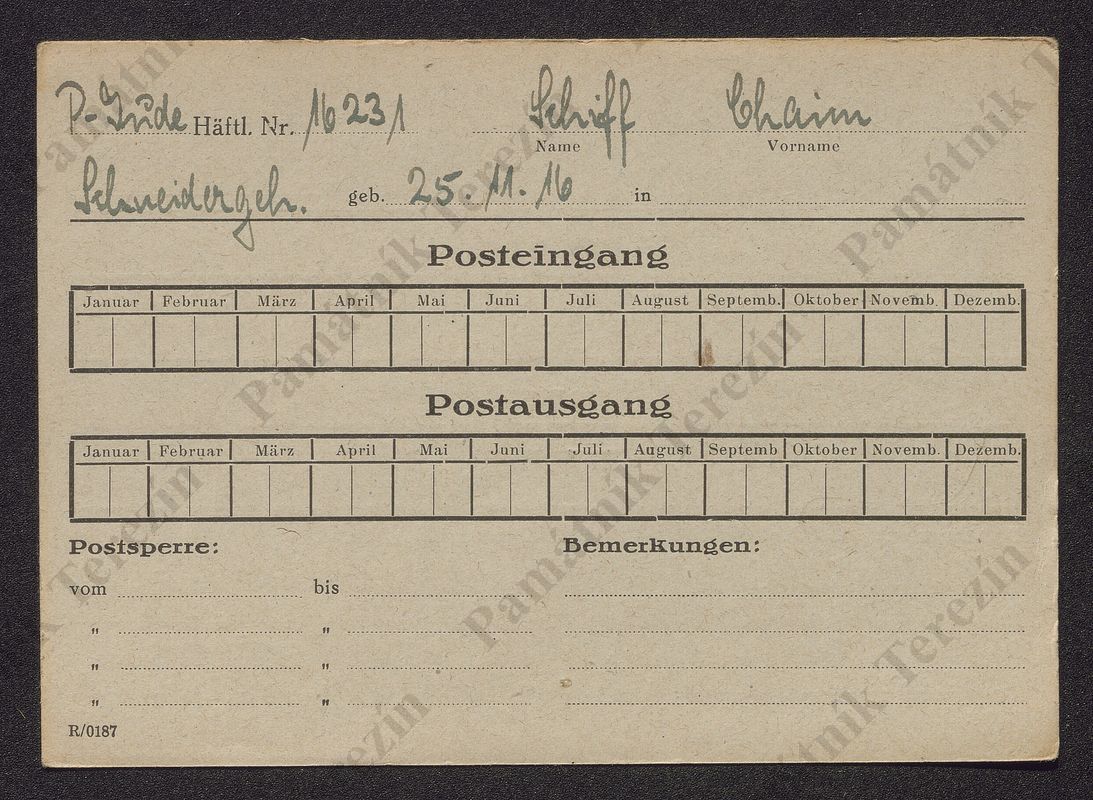 P-Jude Häftl. Nr. 16231 Schiff Chaim
Name Vorname
Schneidergeh. geb. 25. 11. 16 in
Posteingang
Januar Februar März April Mai Juni Juli August Septemb. Oktober Novemb. Dezemb.
Postausgang
Januar Februar März April Mai Juni Juli August Septemb Oktober Novemb. Dezemb.
Postsperre: Bemerkungen:
vom bis
" "
" "
" "
R/0187
Památník Terezín
Památník Terezín
Památník Terezín
Památník Terezín